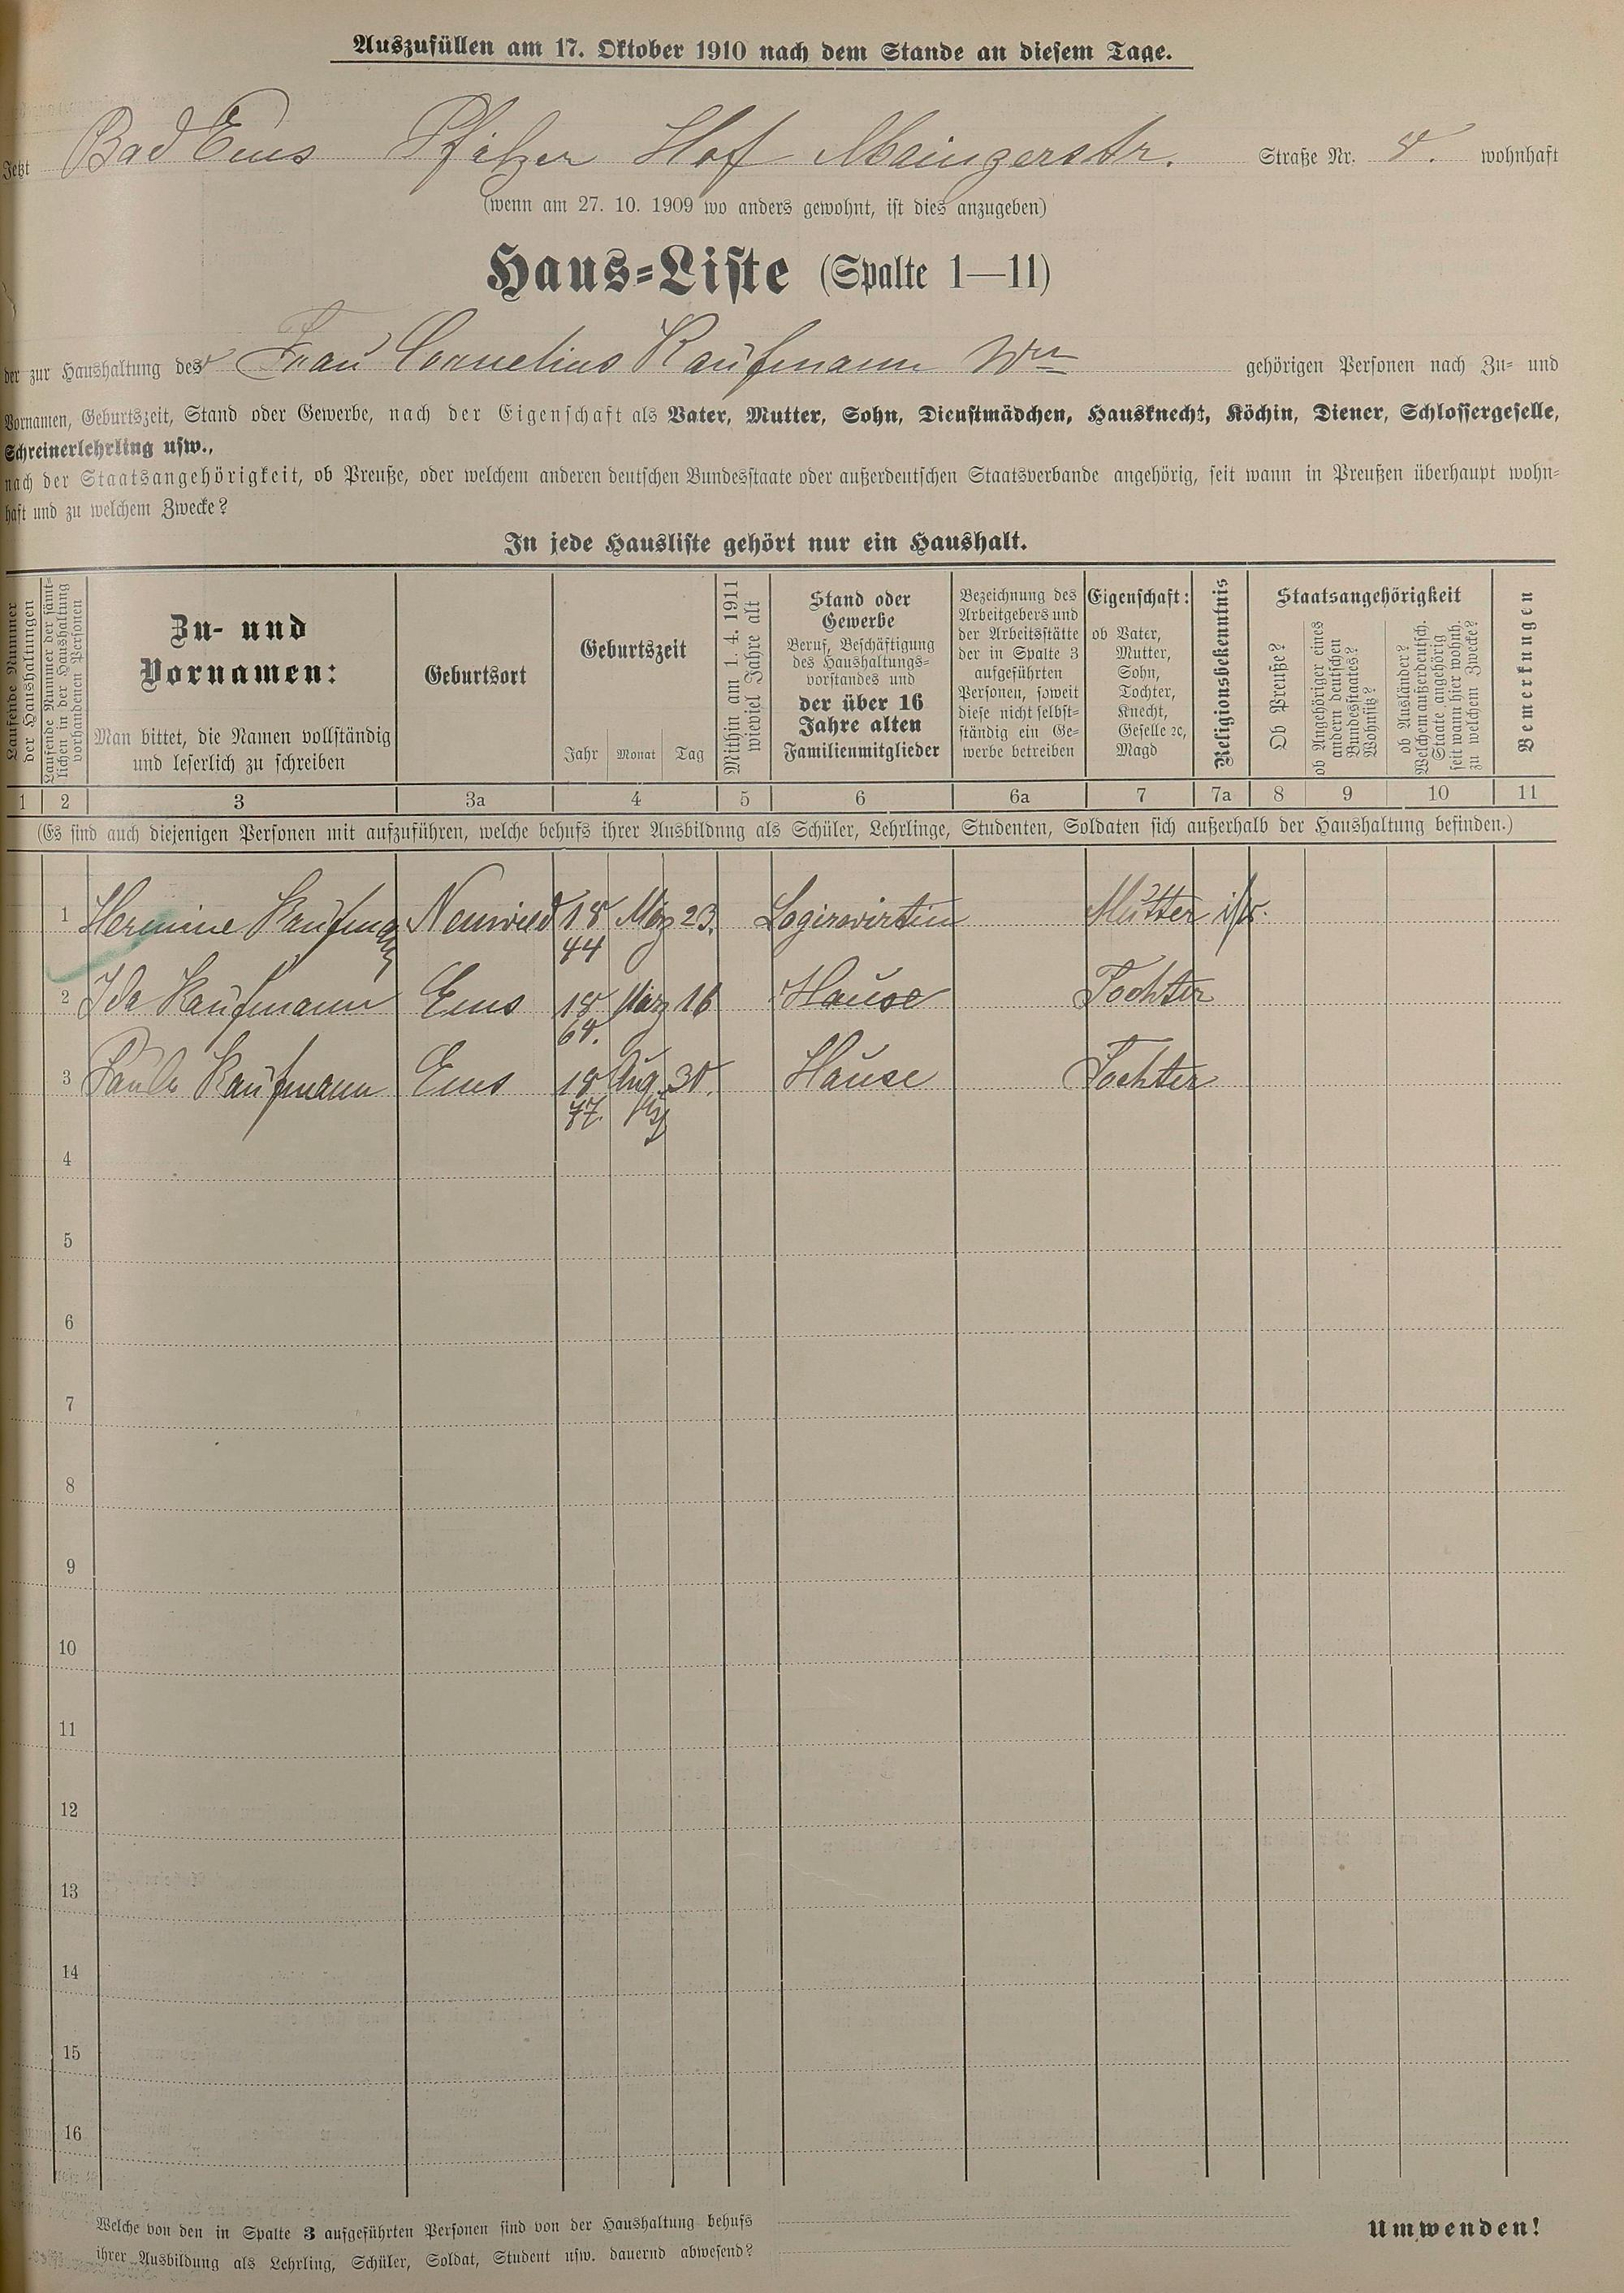 Auszufüllen am 17. Oktober 1910 nach dem Stande an diesem Tage.
Jetzt Bad Ems Pfälzer Hof Mainzerstr. Straße Nr. 8. wohnhaft
(wenn am 27. 10. 1909 wo anders gewohnt, ist dies anzugeben)
Haus-Liste (Spalte 1—11)
der zur Haushaltung des Frau Cornelius Kaufmann Wwe gehörigen Personen nach Zu- und
Vornamen, Geburtszeit, Stand oder Gewerbe, nach der Eigenschaft als Vater, Mutter, Sohn, Dienstmädchen, Hausknecht, Köchin, Diener, Schlossergeselle,
Schreinerlehrling usw.,
nach der Staatsangehörigkeit, ob Preuße, oder welchem anderen deutschen Bundesstaate oder außerdeutschen Staatsverbande angehörig, seit wann in Preußen überhaupt wohn-
haft und zu welchem Zwecke?
In jede Hausliste gehört nur ein Haushalt.
Laufende Nummer
der Haushaltungen
Laufende Nummer der sämt-
lichen in der Haushaltung
vorhandenen Personen
Zu- und
Vornamen:
Man bittet, die Namen vollständig
und leserlich zu schreiben
Geburtsort
Geburtszeit
Jahr Monat Tag
Mithin am 1. 4. 1911
wieviel Jahre alt
Stand oder
Gewerbe
Beruf, Beschäftigung
des Haushaltungs-
vorstandes und
der über 16
Jahre alten
Familienmitglieder
Bezeichnung des
Arbeitgebers und
der Arbeitsstätte
der in Spalte 3
aufgeführten
Personen, soweit
diese nicht selbst-
ständig ein Ge-
werbe betreiben
Eigenschaft:
ob Vater,
Mutter,
Sohn,
Tochter,
Knecht,
Geselle ꝛc,
Magd
Religionsbekenntnis
Staatsangehörigkeit
Ob Preuße?
ob Angehöriger eines
andern deutschen
Bundesstaates?
Wohnsitz?
ob Ausländer?
Welchem außerdeutsch.
Staate angehörig
seit wann hier wohnh.
zu welchem Zwecke?
Bemerkungen
1 2 3 3a 4 5 6 6a 7 7a 8 9 10 11
(Es sind auch diejenigen Personen mit aufzuführen, welche behufs ihrer Ausbildung als Schüler, Lehrlinge, Studenten, Soldaten sich außerhalb der Haushaltung befinden.)
1 Hermine Kaufmann Neuwied 18 März 23. Logirwirtin Mutter isr.
44
2 Ida Kaufmann Ems 18 März 16 Hause Tochter
68.
3 Paula Kaufmann Ems 18 Aug. 30. Hause Tochter
77.
4
5
6
7
8
9
10
11
12
13
14
15
16
Welche von den in Spalte 3 aufgeführten Personen sind von der Haushaltung behufs
ihrer Ausbildung als Lehrling, Schüler, Soldat, Student usw. dauernd abwesend?
Umwenden!